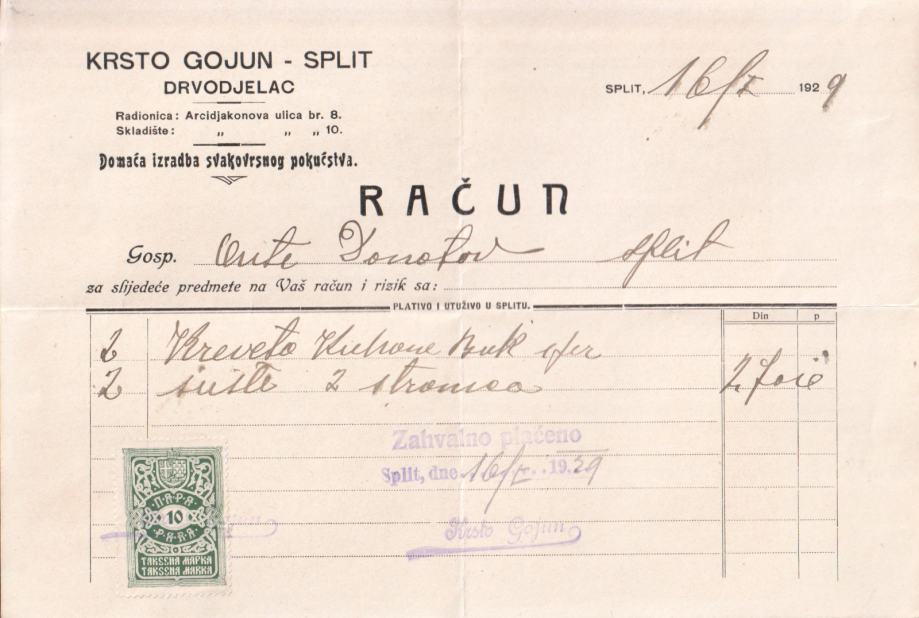 KRSTO GOJUN - SPLIT
DRVODJELAC
Radionica: Arcidjakonova ulica br. 8.
Skladište: „ „ „ 10.
Domaća izradba svakovrsnog pokućstva.
SPLIT, 16/X 1929
RAČUN
Gosp. Ante Donatov Split
za slijedeće predmete na Vaš račun i rizik sa:
PLATIVO I UTUŽIVO U SPLITU.
Din p
2 Kreveta
2 šušte 2
Zahvalno plaćeno
Split, dne 16/X 1929
Krsto Gojun
ПАРА
10
PARA
ТАКСЕНА МАРКА
TAKSENA MARKA